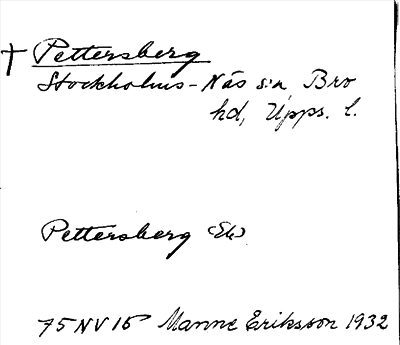 † Pettersberg
Stockholms-Näs s:n Bro
hd, Upps. l.
Pettersberg (Ek)
75 NV 15 Manne Eriksson 1932